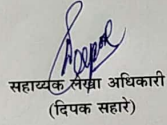 सहाय्यक लेखा अधिकारी
(दिपक सहारे)